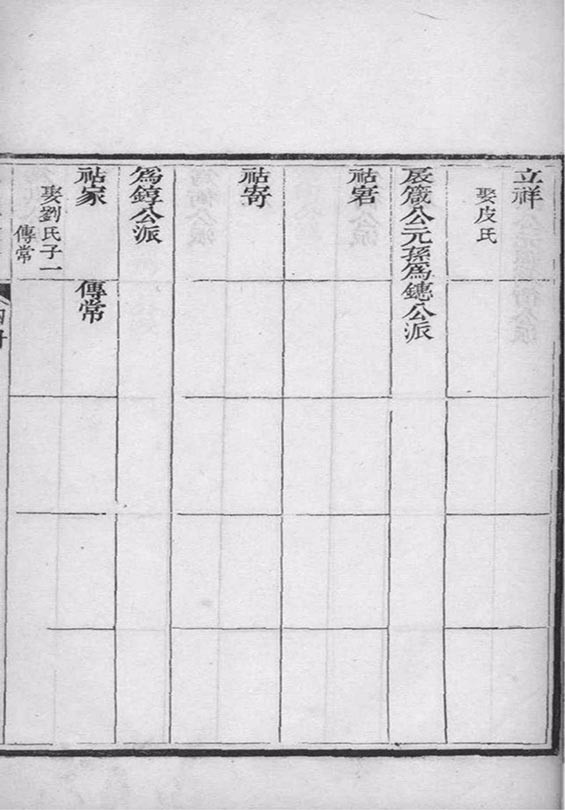 立祥
娶皮氏
辰箴公元孫爲鏸公派
祜宭
祜寄
爲錞公派
祜家
傳常
娶劉氏子一
傳常